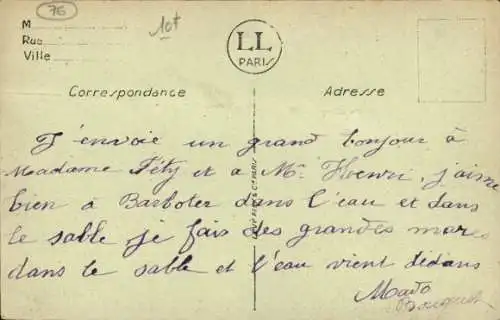 76
M
10f
Rue
Ville
LL
PARIS
Correspondance
Adresse
J'envoie un grand bonjour à
Madame Féty et a Mr Henri, j'aime
bien à Barboter dans l'eau et dans
le sable je fais des grandes mares
dans le sable et l'eau vient dedans
Mado